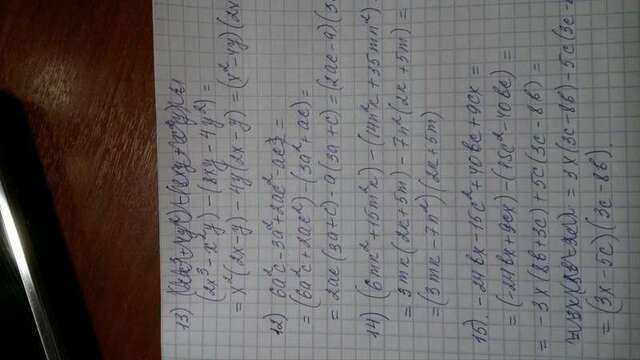 13)
(2x³ - x²y) - (8xy - 4y²) =
= x²(2x-y) - 4y(2x-y) = (x²-4y)(2x
12) 6a²c - 3a² + 2ac² - ac =
= (6a²c + 2ac²) - (3a² + ac) =
= 2ac(3a+c) - a(3a+c) = (2ac-a)(3
14) (6mk² + 15m²k) - (14n²k + 35mn²) =
= 3mk(2k+5m) - 7n²(2k+5m) =
= (3mk - 7n²)(2k+5m)
15) -24bx - 15c² + 40bc + 9cx =
= (-24bx + 9cx) - (15c² - 40bc) =
= -3x(8b+3c) + 5c(3c-8b) =
= 3x(3c-8b) - 5c(3c-
= (3x-5c)(3c-8b)